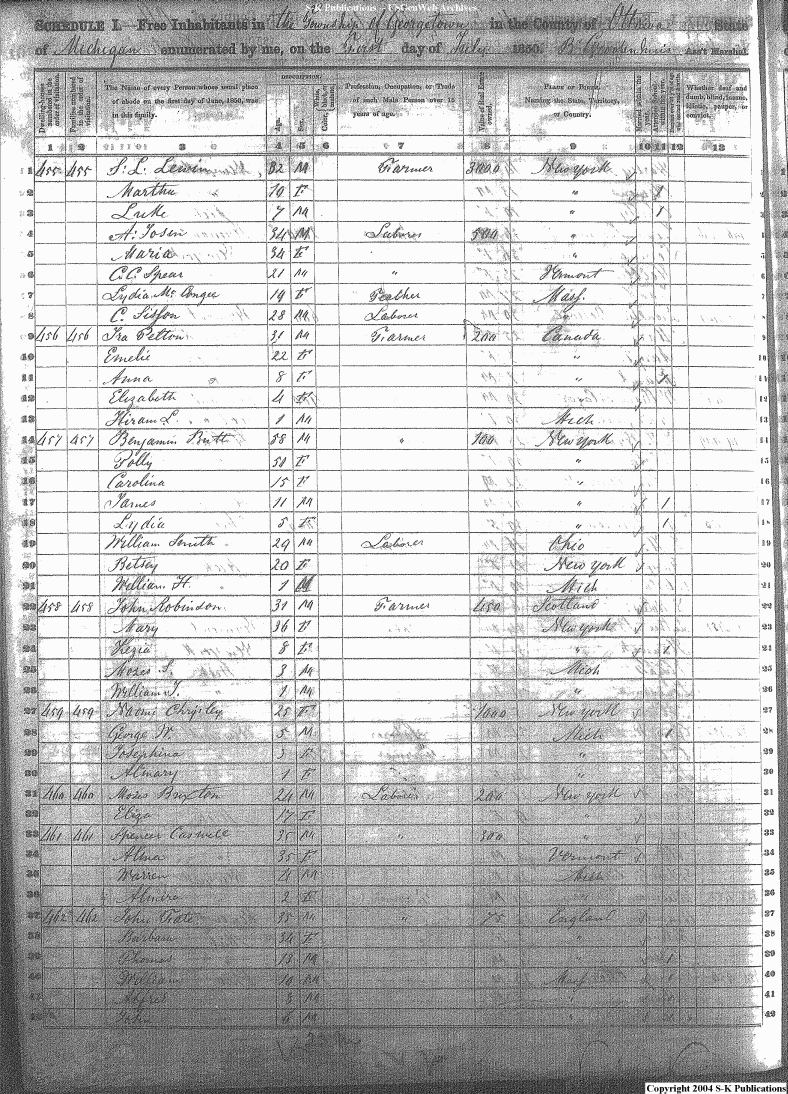 S-K Publications - USGenWeb Archives
SCHEDULE I.—Free Inhabitants in the Township of Georgetown in the County of Ottawa State
of Michigan enumerated by me, on the First day of July 1850. Ass't Marshal.
Dwelling-houses numbered in the order of visitation. Families numbered in the order of visitation. The Name of every Person whose usual place of abode on the first day of June, 1850, was in this family. DESCRIPTION. Age. Sex. White, black, or mulatto. Profession, Occupation, or Trade of each Male Person over 15 years of age. Value of Real Estate owned. PLACE OF BIRTH. Naming the State, Territory, or Country. Married within the year. Attended School within the year. Whether deaf and dumb, blind, insane, idiotic, pauper, or convict.
1 2 3 4 5 6 7 8 9 10 11 12 13
1 455 455 S. L. Lewin 32 M Farmer 3000 New York 1
2 Martha 10 F " 1 2
3 Luke 7 M " 1 3
4 A. Josin 34 M Laborer 500 " 4
5 Maria 34 F " 5
6 C. C. Spear 21 M " Vermont 6
7 Lydia Mc Conger 19 F Teacher Mass. 7
8 C. Sisson 28 M Laborer " 8
9 456 456 Ira Pelton 31 M Farmer 200 Canada 9
10 Emelie 22 F " 10
11 Anna 8 F " 1 11
12 Elizabeth 4 F " 12
13 Hiram L. 1 M Mich 13
14 457 457 Benjamin Butt 58 M " 100 New York 14
15 Polly 50 F " 15
16 Carolina 15 F " 16
17 James 11 M " 1 17
18 Lydia 5 F " 1 18
19 William Smith 29 M Laborer Ohio 19
20 Betsey 20 F New York 20
21 William H. 1 M Mich 21
22 458 458 John Robinson 31 M Farmer 450 Scotland 22
23 Mary 36 F New York 23
24 Kezia 8 F " 1 24
25 Mozes S. 3 M Mich 25
26 William J. 1 M " 26
27 459 459 Naomi Chrysley 25 F 1000 New York 27
28 George W. 5 M Mich 1 28
29 Josephina 3 F " 29
30 Almary 1 F " 30
31 460 460 Mozes Buxton 24 M Laborer 200 New York 31
32 Eliza 17 F " 32
33 461 461 Spencer Caswell 35 M " 300 " 33
34 Alma 35 F Vermont 34
35 Warren 4 M Mich 35
36 Almira 2 F " 36
37 462 462 John Tate 35 M " 75 England 37
38 Barbara 34 F " 38
39 Thomas 13 M " 1 39
40 William 10 M Mass 1 40
41 Alfred 8 M " 41
42 John 6 M " 42
Copyright 2004 S-K Publications